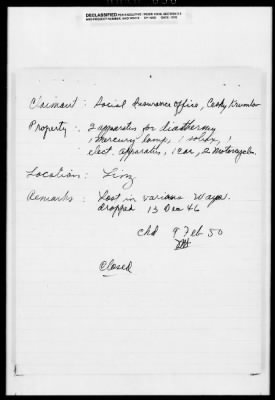 DECLASSIFIED
Claimant : Social Insurance Office, Cesky Krumlov
Property : 2 apparatus for diathermy
1 mercury lamp, 1 solux, 1
elect. apparatus, 1 car, 2 motorcycles.
Location : Linz
Remarks : Lost in various ways.
dropped 13 Dec 46
Chd 9 Feb 50
Closed